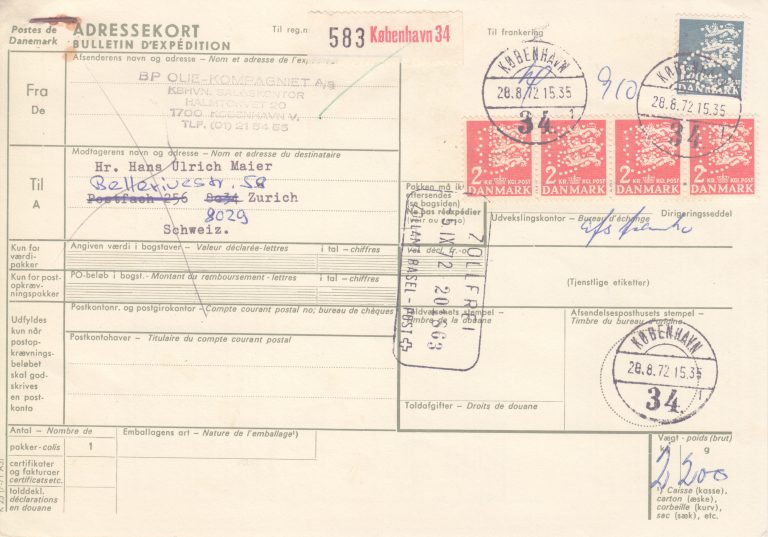 Postes de Danemark
ADRESSEKORT
BULLETIN D'EXPÉDITION
Til reg.nr.
583 København 34
Til frankering
Afsenderens navn og adresse – Nom et adresse de l'exp
Fra
De
BP OLIE-KOMPAGNIET A/S
KBHVN. SALGSKONTOR
HALMTORVET 20
1700 KØBENHAVN V.
TLF. (01) 21 54 55
KØBENHAVN
28.8.72 15.35
34 1
910
DANMARK
KØBENHAVN
28.8.72 15.35
34
2 KR. KGL POST DANMARK
2 KR. KGL POST DANMARK
2 KR. KGL POST DANMARK
2 KR. KGL POST DANMARK
Modtagerens navn og adresse – Nom et adresse du destinataire
Til
A
Hr. Hans Ulrich Maier
Bellerivestr. 58
Postfach 256 Zurich
8029
Schweiz.
Pakken må ik
eftersendes
(se bagsiden)
pas réexpédier
Udvekslingskontor – Bureau d'échange
Dirigeringsseddel
Kun for værdi-pakker
Angiven værdi i bogstaver – Valeur déclarée-lettres
i tal – chiffres
Kun for post-opkræv-ningspakker
PO-beløb i bogst. - Montant du remboursement - lettres
i tal – chiffres
ZOLLFREI
5. IX. 72
BASEL - POST
(Tjenstlige etiketter)
Udfyldes kun når postop-krævnings-beløbet skal god-skrives en post-konto
Postkontonr. og postgirokontor – Compte courant postal no; bureau de chèques
Postkontohaver – Titulaire du compte courant postal
Toldvæsenets stempel –
Timbre de la douane
Afsendelsesposthusets stempel –
Timbre du bureau d'origine
KØBENHAVN
28.8.72 15.35
34 1
Toldafgifter – Droits de douane
Antal – Nombre de
pakker-colis
1
Emballagens art – Nature de l'emballage¹)
certifikater
og fakturaer
certificats etc.
tolddekl.
déclarations
en douane
Vægt - poids (brut)
kg g
2 200
¹) Caisse (kasse),
carton (æske),
corbeille (kurv),
sac (sæk), etc.